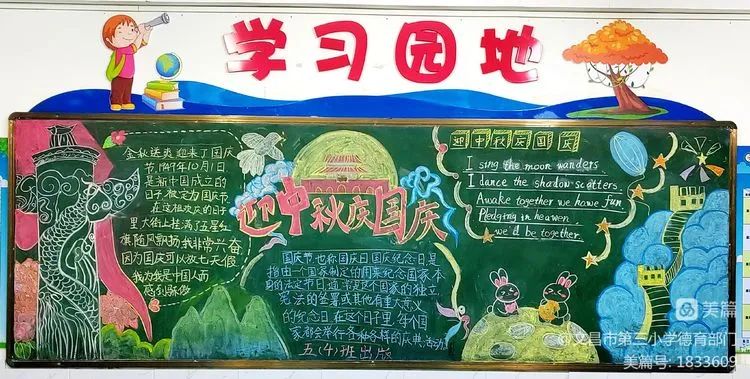 学习园地
金秋送爽迎来了国庆
节,1949年10月1日
是新中国成立的
日子,被定为国庆节
在这祖欢庆的日子
里大街上挂满了五星红
旗随风飘扬我非常兴奋
因为国庆可以放七天假
我为我是中国人而
感到骄傲
迎中秋庆国庆
国庆节也称国庆日国庆纪念日是
指由一个国家制定的用来纪念国家本
身的法定节日通常是这个国家的独立
宪法的签署或其他有重大意义
的纪念日在这个日子里,每个国
家都会举行各种各样的庆典活动
五(4)班出版
迎中秋庆国庆
I sing the moon wanders
I dance the shadow scatters.
Awake together we have fun
Pledging in heaven
we'll be together
美篇
@文昌市第三小学德育部门
美篇号: 1833609